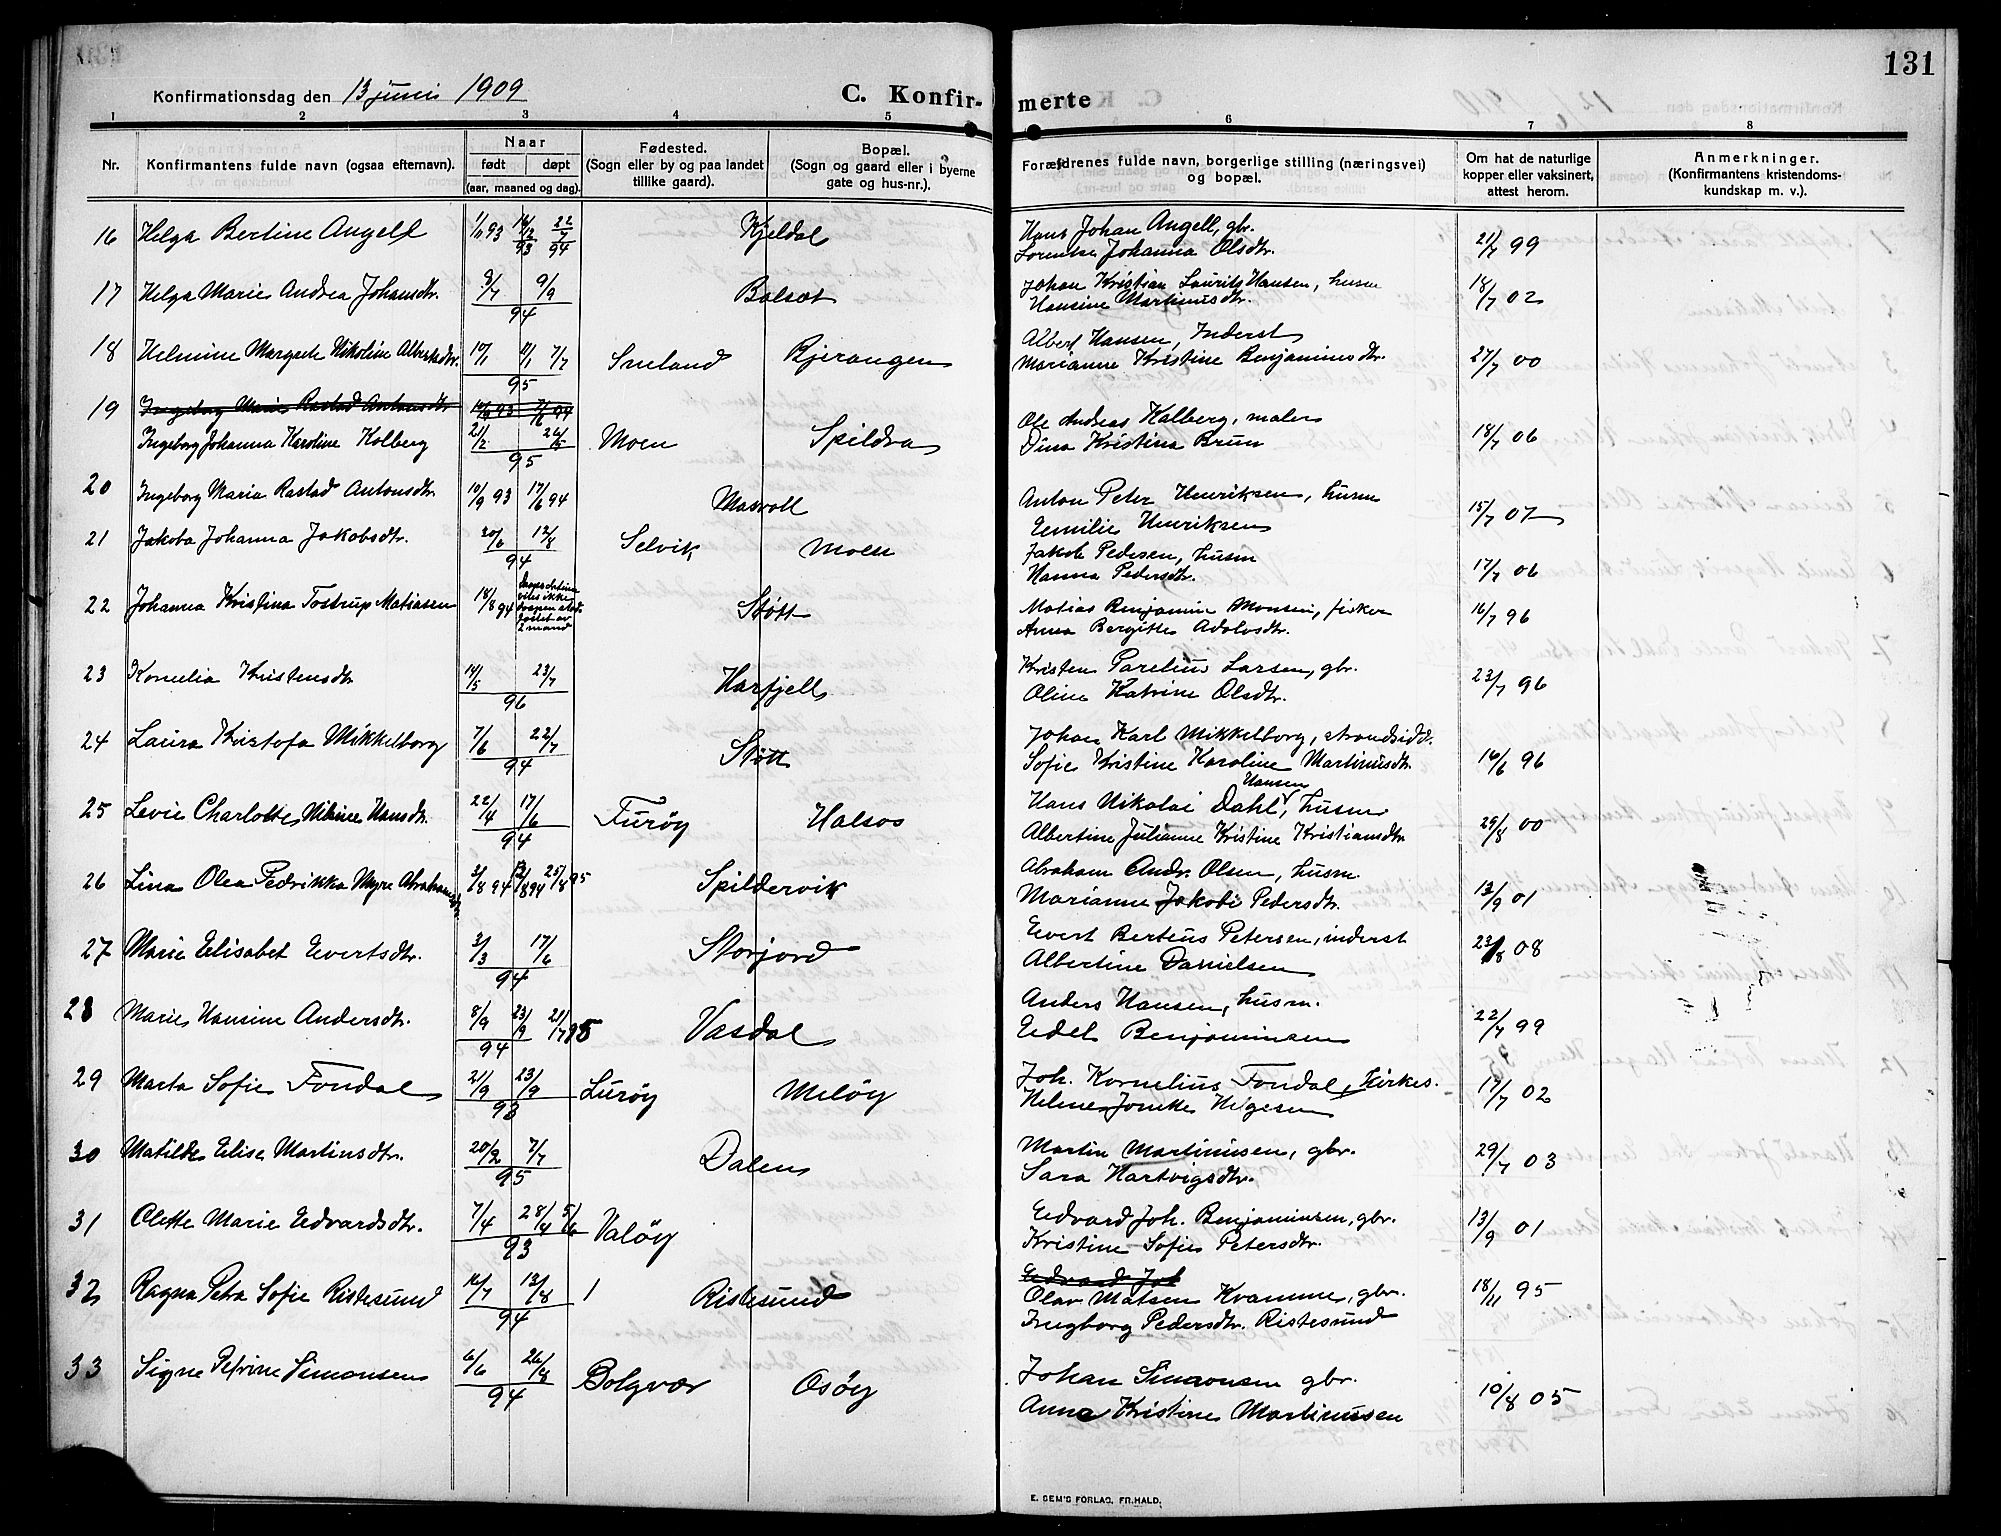 131
Konfirmationsdag den 13 juni 1909 C. Konfir- merte
1 2 3 4 5 6 7 8
Nr. Konfirmantens fulde navn (ogsaa efternavn). Naar født døpt (aar, maaned og dag). Fødested. (Sogn eller by og paa landet tillike gaard). Bopæl. (Sogn og gaard eller i byerne gate og hus-nr.). Forældrenes fulde navn, borgerlige stilling (næringsvei) og bopæl. Om hat de naturlige kopper eller vaksinert, attest herom. Anmerkninger. (Konfirmantens kristendomskundskap m. v.).
16 Helga Bertine Angell 93 16/12 93 22/7 94 Kjeldal Hans Johan Angell, gbr. 21/7 99
Lorentse Johanna Olsdtr.
17 Helga Marie Andrea Johansdtr. 9/9 94 Bolsøt Johan Kristian Laurits Hansen, husm 18/7 02
Hansine Martinusdtr.
18 Helmine Margrete Nikoline Albertsdtr. 7/7 95 Smeland Bjerangen Albert Hansen, Inderst 27/7 00
Marianne Kristine Benjaminsdtr.
19 Ingeborg Marie Rastad Antonsdtr 10/9 93 94
Ingeborg Johanna Karoline Kolberg 21/2 26/5 95 Moen Spildra Ole Andreas Kalberg, maler 18/7 06
Dina Kristina Brun
20 Ingeborg Maria Rastad Antonsdtr. 10/9 93 17/6 94 Masvoll Anton Peter Henriksen, husm 15/7 07
Emilie Henriksen
21 Jakoba Johanna Jakobsdtr. 20/6 12/8 94 Selvik Moen Jakob Pedersen, husm 17/7 06
Hanna Pedersdtr.
22 Johanna Kristina Tostrup Matiasen 18/8 94 2 mand Støtt Matias Benjamin Monsen, fisker 16/7 96
Anna Bergitte Adolvsdtr.
23 Kornelia Kristensdtr 14/5 23/7 96 Harfjell Kristen Parelius Larsen, gbr. 23/7 96
Oline Katrine Olsdtr.
24 Laura Kristofa Mikkelborg 7/6 22/7 94 Støtt Johan Karl Mikkelborg, strandsidd. 16/6 96
Sofie Kristine Karoline Martinusdtr.
25 Levie Charlotte Hansdtr. 22/4 17/6 94 Furøy Halsos Hans Nikolai Dahl Hansen, husm 29/8 00
Albertine Julianne Kristine Kristiansdtr
26 Lina Olea Fedrikka Myre Abrahamsdtr 3/8 94 12/8 94 25/8 95 Spildervik Abraham Andr. Olsen, husm. 13/9 01
Marianne Jakobi Pedersdtr.
27 Marie Elisabet Evertsdtr. 3/3 17/6 94 Storjord Evert Berteus Petersen, inderst 23/8 08
Albertine Danielsen
28 Marie Hansine Andersdtr. 8/9 23/9 94 21/7 95 Vasdal Anders Hansen, husm. 22/7 99
Edel Benjaminsen
29 Marta Sofie Fondal 21/9 23/9 93 Lurøy Meløy Joh. Kornelius Fondal, kirkes. 17/7 02
Helene Jonette Helgesen
30 Matilde Elise Martinsdtr. 20/2 7/7 95 Dalen Martin Martinussen, gbr. 29/7 03
Sara Hartvigsdtr.
31 Olette Marie Edvardsdtr. 7/4 28/4 5/6 93 Valøy Edvard Joh. Benjaminsen, gbr. 13/9 01
Kristine Sofie Petersdtr.
Edvard Joh
32 Ragna Petra Sofie Ristesund 12/7 13/8 94 1 Ristesund Olav Matsen Kvamme, gbr. 18/11 95
Ingborg Pedersdtr. Ristesund
33 Signe Petrine Simonsen 6/6 26/8 94 Bolgvær Osøy Johan Simonsen gbr. 10/8 05
Anna Kristine Martinussen
E. SEM'S FORLAG, FR.HALD.